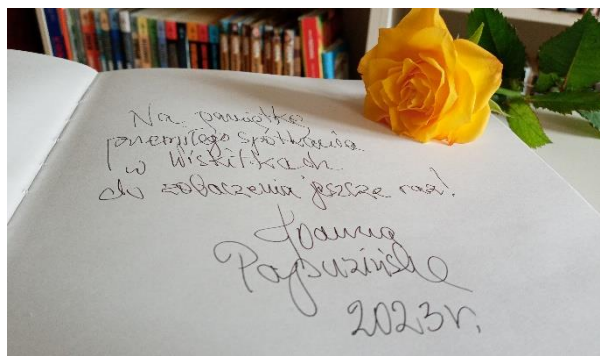 Na pamiątkę
przemiłego spotkania
w Wiskitkach
do zobaczenia jeszcze raz!
Joanna
Papuzińska
2023r.